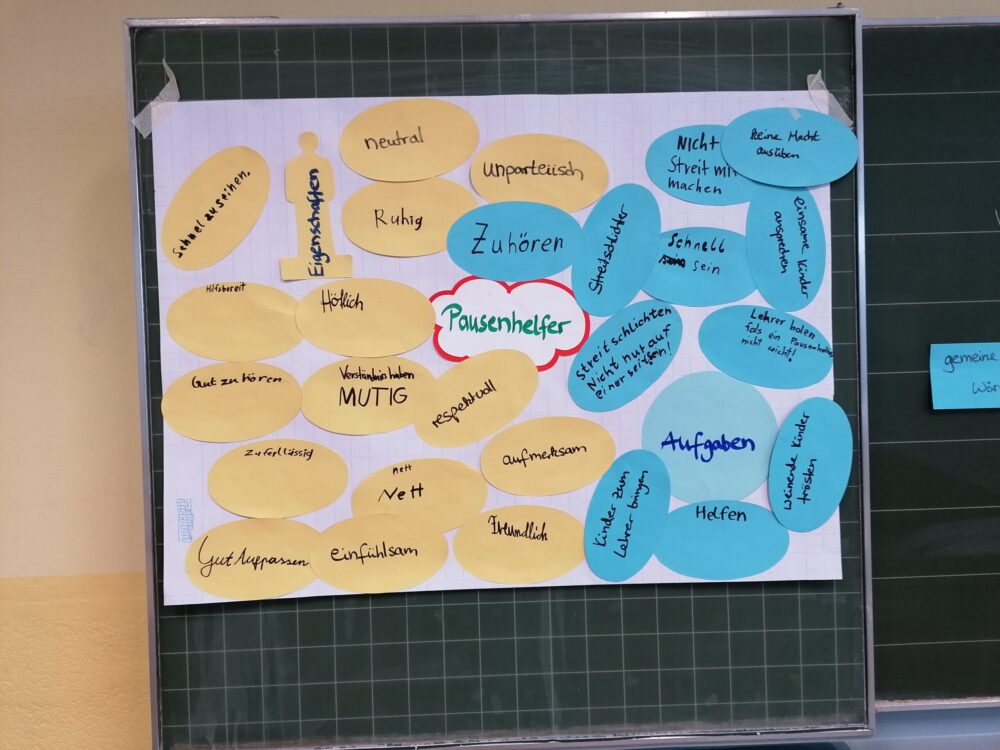 neutral
unparteiisch
Schnel zu seihen.
Eigenschaften
Ruhig
Zuhören
Streitschlichter
NICHT
Streit mit
machen
Keine Macht
ausüben
Schnell
sein
einsame Kinder
ansprechen
Hilfsbereit
Höflich
Pausenhelfer
Streitschlichten
Nicht nur auf
einer seitsein!
Lehrer holen
fals ein Pausenhelfer
nicht reicht!
gemeine
Wör
Gut zu hören
Verständnis haben
MUTIG
respektvoll
Aufgaben
Zuferllässig
nett
Nett
aufmerksam
Kinder zum
Lehrer bringen
weinende Kinder
trösten
Helfen
Gut Auppassen
einfühlsam
Freundlich